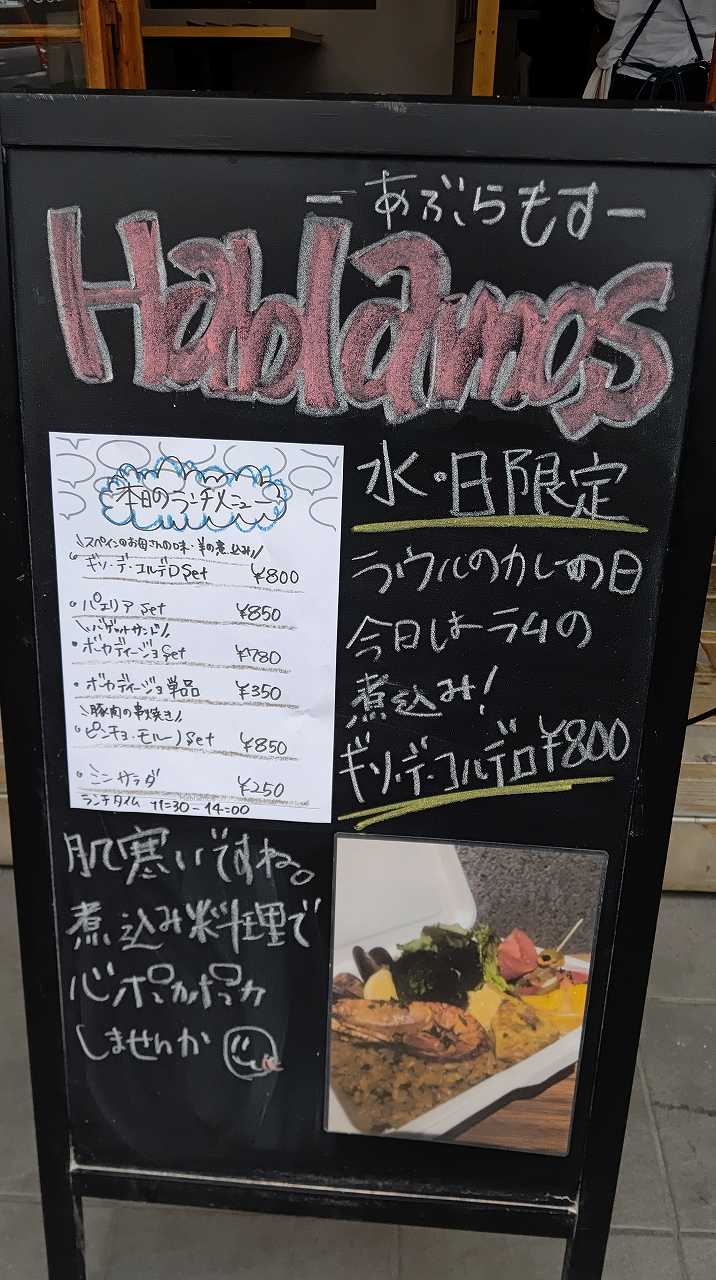 ーあぶらもすー
Hablamos
本日のランチメニュー
\スペインのお母さんの味・羊の煮込み/
・ギソ・デ・コルデロSet ¥800
・パエリアSet ¥850
\バゲットサンド/
・ボカディージョSet ¥780
・ボカディージョ単品 ¥350
\豚肉の串焼き/
・ピンチョ・モルーノSet ¥850
・ミニサラダ ¥250
ランチタイム 11:30-14:00
水・日限定
ラウルのカレーの日
今日はラムの
煮込み!
ギソ・デ・コルデロ¥800
肌寒いですね。
煮込み料理で
心ポカポカ
しませんか